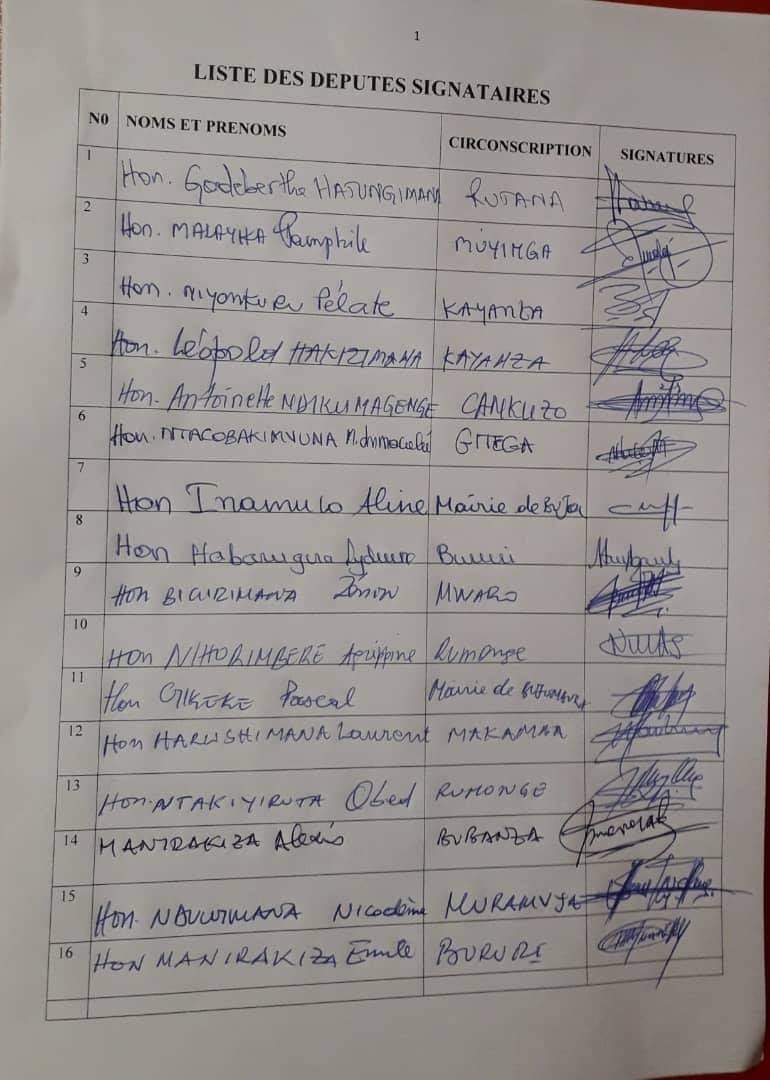 1
LISTE DES DEPUTES SIGNATAIRES
N0 NOMS ET PRENOMS CIRCONSCRIPTION SIGNATURES
1 Hon. Godeberthe HATUNGIMANA RUTANA
2 Hon. MALAYIKA Pamphile MUYINGA
3 Hon. Niyonkuru Pélate KAYANZA
4 Hon. Léopold HAKIZIMANA KAYANZA
5 Hon. Antoinette NDIKUMAGENGE CANKUZO
6 Hon. NTACOBAKIMVUNA GITEGA
7 Hon Inamuco Aline Mairie de Buja
8 Hon
9 Hon BIGIRIMANA MWARO
10 Hon NIHORIMBERE Agrippine Rumonge
11 Hon GIKEKE Pascal Mairie de BUJUMBURA
12 Hon HARUSHIMANA Laurent MAKAMBA
13 Hon. NTAKIYIRUTA Obed RUMONGE
14 MANIRAKIZA Alexis BUBANZA
15 Hon. NDUWIMANA Nicodème MURAMVYA
16 HON MANIRAKIZA Emile BURURI